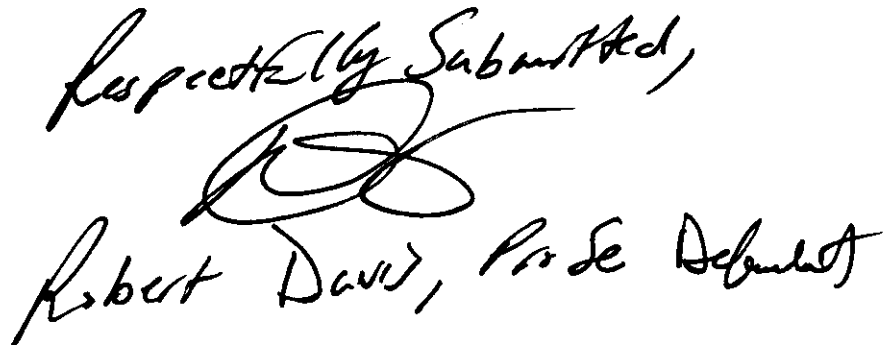 Respectfully Submitted,
Robert David, Pro Se Defendant